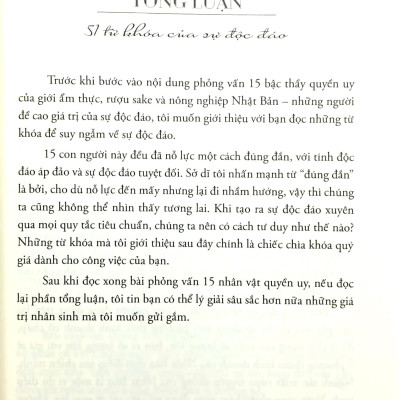 TỔNG LUẬN
51 từ khóa của sự độc đáo
Trước khi bước vào nội dung phỏng vấn 15 bậc thầy quyền uy
của giới ẩm thực, rượu sake và nông nghiệp Nhật Bản – những người
đề cao giá trị của sự độc đáo, tôi muốn giới thiệu với bạn đọc những từ
khóa để suy ngẫm về sự độc đáo.
15 con người này đều đã nỗ lực một cách đúng đắn, với tính độc
đáo áp đảo và sự độc đáo tuyệt đối. Sở dĩ tôi nhấn mạnh từ “đúng đắn”
là bởi, cho dù nỗ lực đến mấy nhưng lại đi nhầm hướng, vậy thì chúng
ta cũng không thể nhìn thấy tương lai. Khi tạo ra sự độc đáo xuyên
qua mọi quy tắc tiêu chuẩn, chúng ta nên có cách tư duy như thế nào?
Những từ khóa mà tôi giới thiệu sau đây chính là chiếc chìa khóa quý
giá dành cho công việc của bạn.
Sau khi đọc xong bài phỏng vấn 15 nhân vật quyền uy, nếu đọc
lại phần tổng luận, tôi tin bạn có thể lý giải sâu sắc hơn nữa những giá
trị nhân sinh mà tôi muốn gửi gắm.